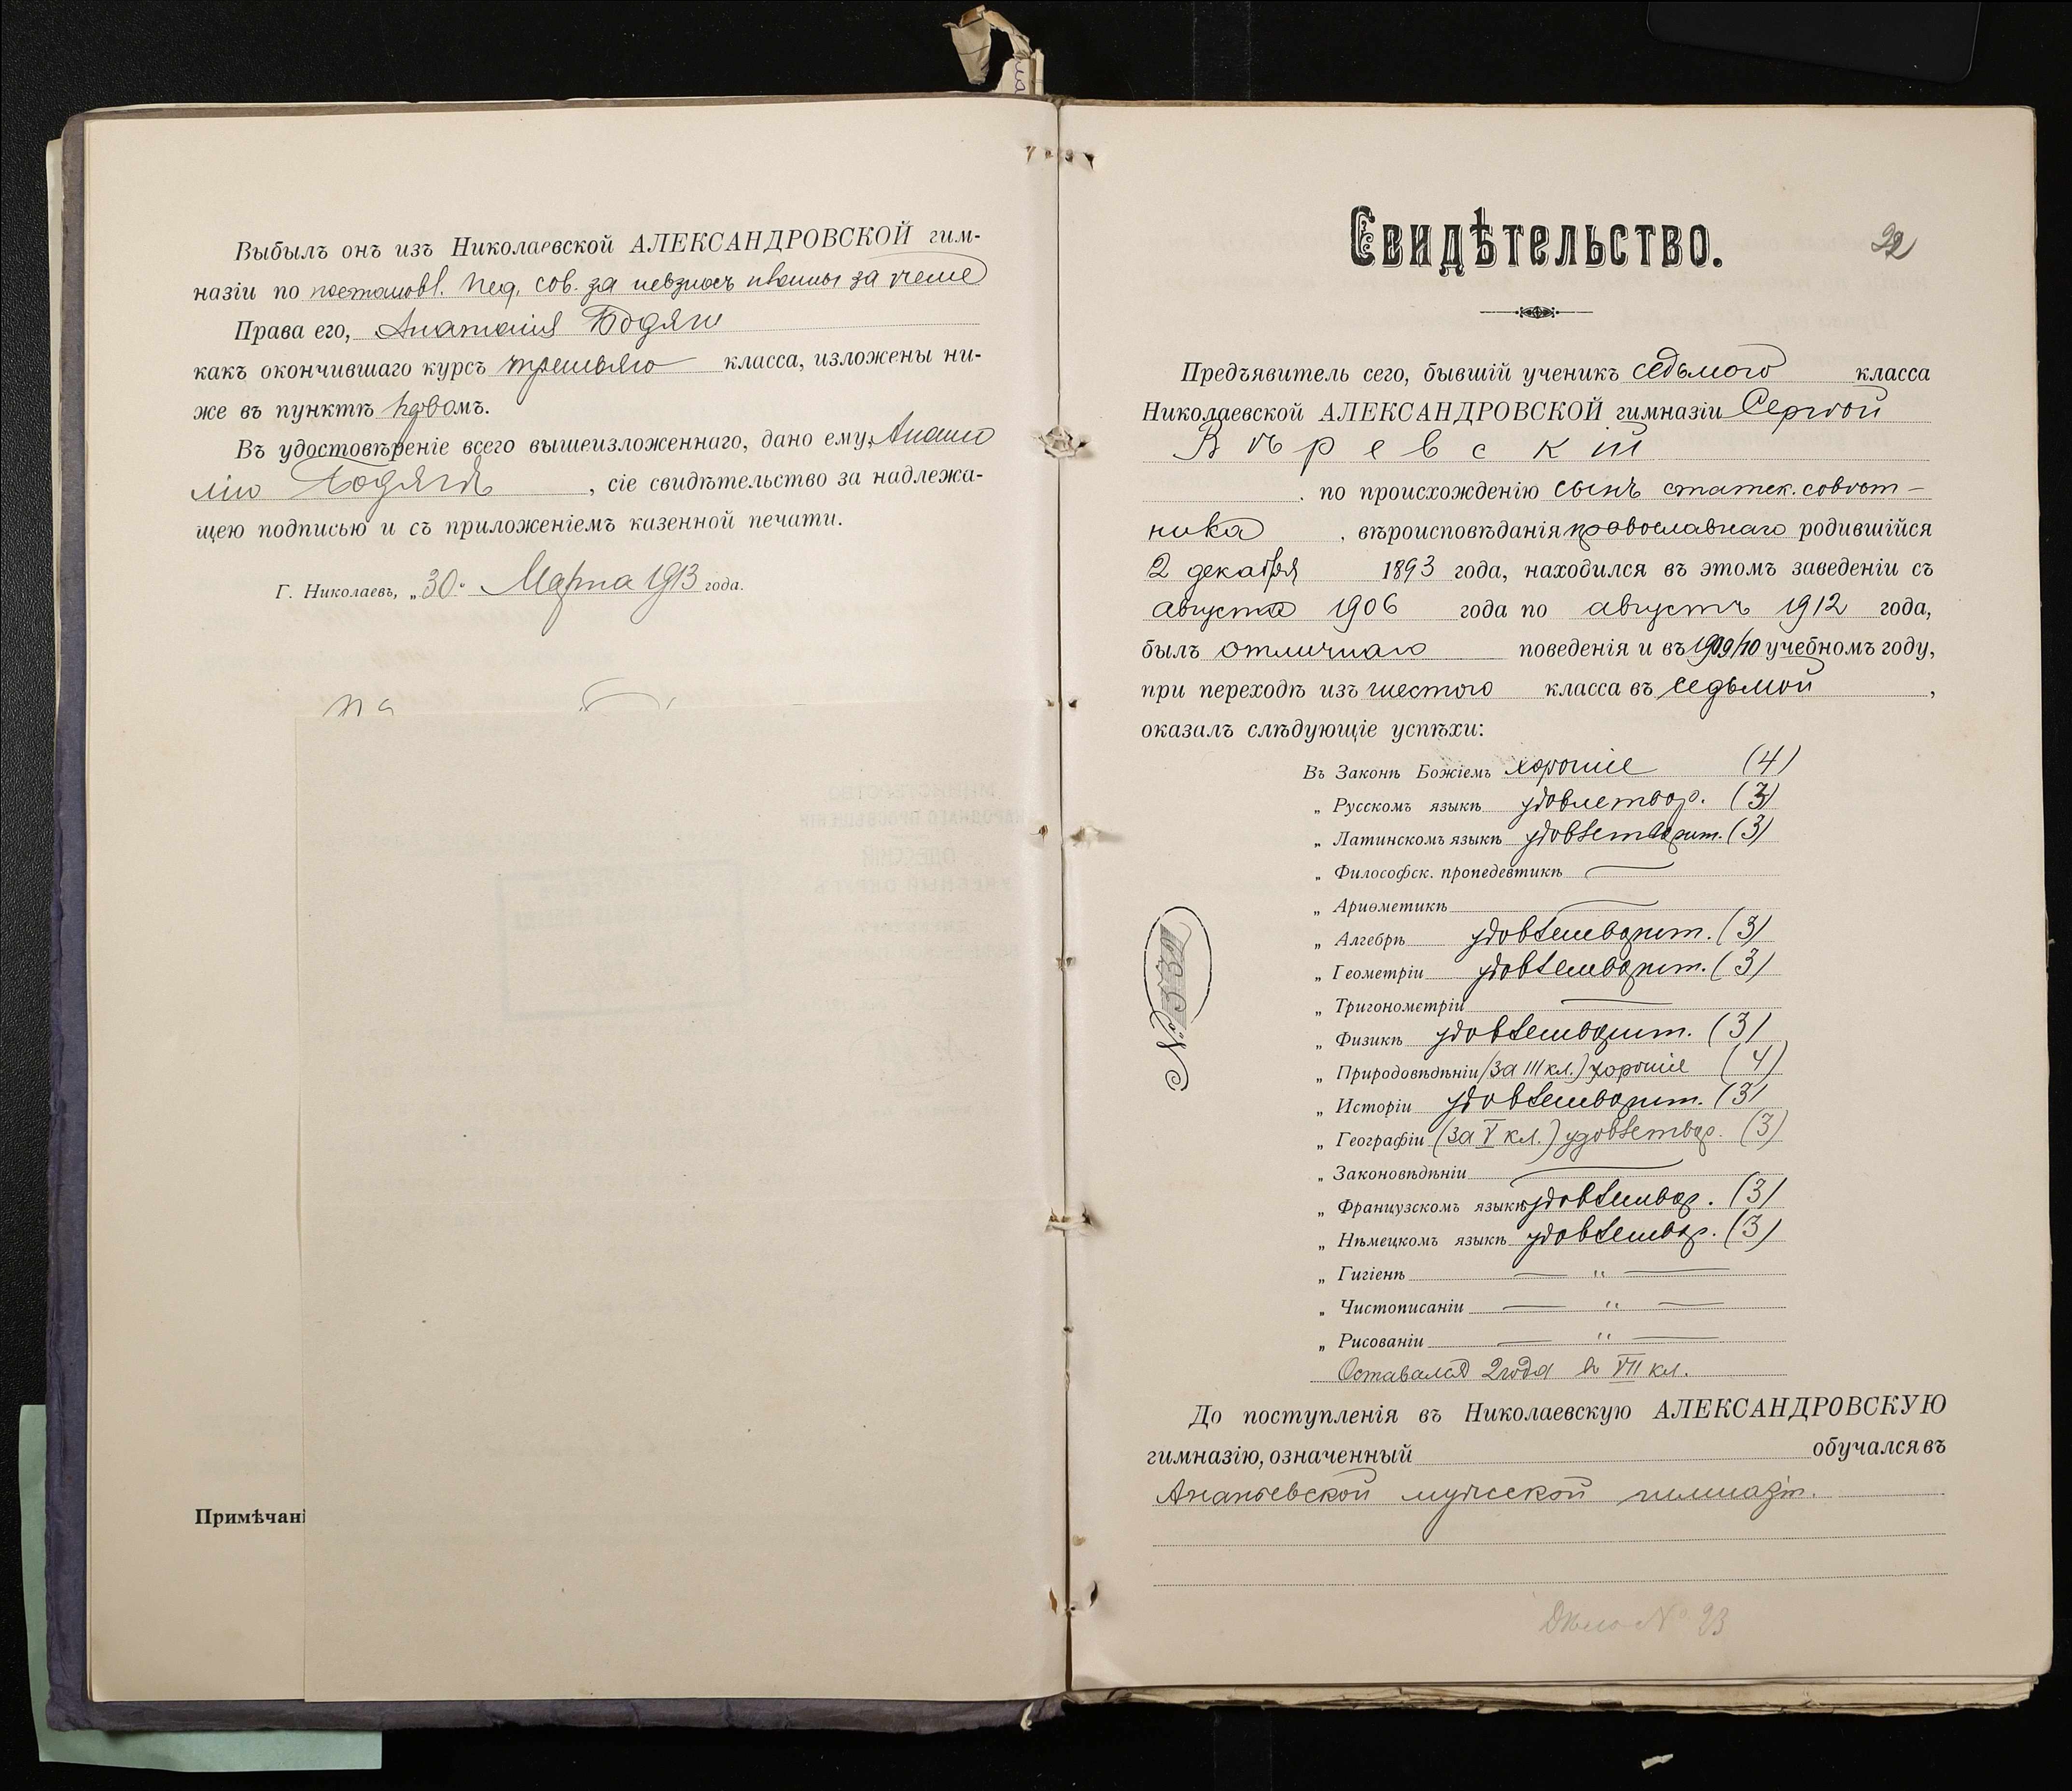 Выбылъ онъ изъ Николаевской АЛЕКСАНДРОВСКОЙ гим-
назіи по постановл. Пед. сов. за невзносъ платы за учение
Права его, Анатолія Бодяги
какъ окончившаго курсъ третьяго класса, изложены ни-
же въ пунктѣ первомъ.
Въ удостовѣреніе всего вышеизложеннаго, дано ему, Анато
лію Бодягѣ, сіе свидѣтельство за надлежа-
щею подписью и съ приложеніемъ казенной печати.
Г. Николаевъ, „30" Марта 1913 года.
Примѣчані
Свидѣтельство.
Предъявитель сего, бывшій ученикъ седьмого класса
Николаевской АЛЕКСАНДРОВСКОЙ гимназіи Сергѣй
Вѣревскій
по происхожденію сынъ статск. совѣт-
ника, вѣроисповѣданія православнаго родившійся
2 декабря 1893 года, находился въ этомъ заведеніи съ
августа 1906 года по августъ 1912 года,
былъ отличнаго поведенія и въ 1909/10 учебномъ году,
при переходѣ изъ шестого класса въ седьмой,
оказалъ слѣдующіе успѣхи:
Въ Законѣ Божіемъ хорошіе (4)
„ Русскомъ языкѣ удовлетвор. (3)
„ Латинскомъ языкѣ удовлетворит. (3)
„ Философск. пропедевтикѣ —
„ Ариѳметикѣ —
„ Алгебрѣ удовлетворит. (3)
„ Геометріи удовлетворит. (3)
„ Тригонометріи —
„ Физикѣ удовлетворит. (3)
„ Природовѣдѣніи (за III кл.) хорошіе (4)
„ Исторіи удовлетворит. (3)
„ Географіи (за V кл.) удовлетвор. (3)
„ Законовѣдѣніи —
„ Французскомъ языкѣ удовлетвор. (3)
„ Нѣмецкомъ языкѣ удовлетвор. (3)
„ Гигіенѣ — " —
„ Чистописаніи — " —
„ Рисованіи — " —
Оставался 2 года въ VII кл.
До поступленія въ Николаевскую АЛЕКСАНДРОВСКУЮ
гимназію, означенный обучался въ
Ананьевской мужской гимназіи.
Дѣло № 93